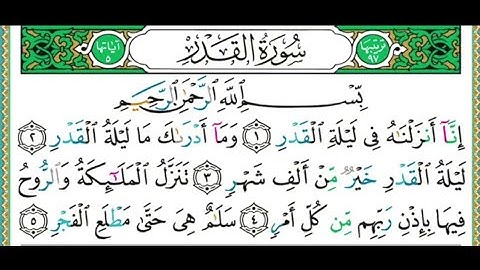 ترتيبها ٩٧ سُورَةُ الْقَدْرِ آياتها ٥
بِسْمِ ٱللَّهِ ٱلرَّحْمَٰنِ ٱلرَّحِيمِ
إِنَّآ أَنزَلْنَٰهُ فِى لَيْلَةِ ٱلْقَدْرِ ١ وَمَآ أَدْرَىٰكَ مَا لَيْلَةُ ٱلْقَدْرِ ٢
لَيْلَةُ ٱلْقَدْرِ خَيْرٌ مِّنْ أَلْفِ شَهْرٍ ٣ تَنَزَّلُ ٱلْمَلَٰٓئِكَةُ وَٱلرُّوحُ
فِيهَا بِإِذْنِ رَبِّهِم مِّن كُلِّ أَمْرٍ ٤ سَلَٰمٌ هِىَ حَتَّىٰ مَطْلَعِ ٱلْفَجْرِ ٥